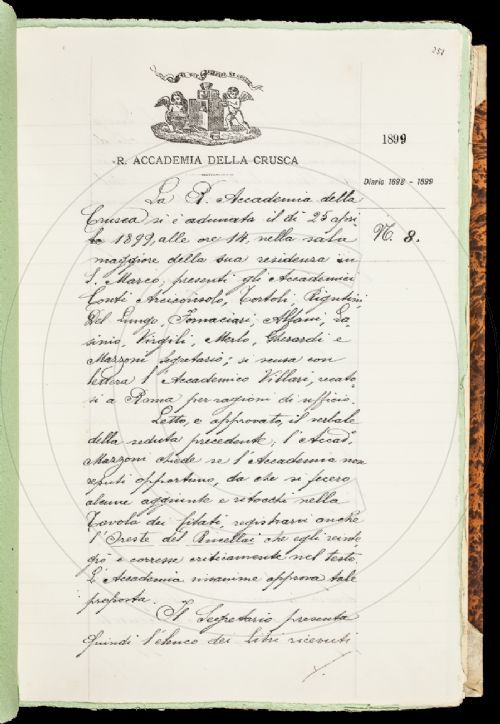 251
IL PIÙ BEL FIOR NE COGLIE
1899
R. ACCADEMIA DELLA CRUSCA
Diario 1898 - 1899
La R. Accademia della
Crusca si è adunata il dì 25 apri
le 1899, alle ore 14, nella sala
N. 8.
maggiore della sua residenza in
S. Marco; presenti gli Accademici
Conti Arciconsolo, Tortoli, Rigutini,
Del Lungo, Tomaciari, Alfani, La
sinio, Virgili, Merlo, Gherardi e
Mazzoni Segretario; si scusa con
lettera l'Accademico Villari, recato
si a Roma per ragioni di ufficio.
Letto, e approvato, il verbale
della seduta precedente, l'Accad.º
Mazzoni chiede se l'Accademia non
reputi opportuno, da che si fecero
alcune aggiunte e ritocchi nella
Tavola dei Citati, registrarvi anche
l'Oreste del Rucellai che egli rivide
già e corresse criticamente nel testo.
L'Accademia unanime approva tale
proposta.
Il Segretario presenta
quindi l'elenco dei libri ricevuti